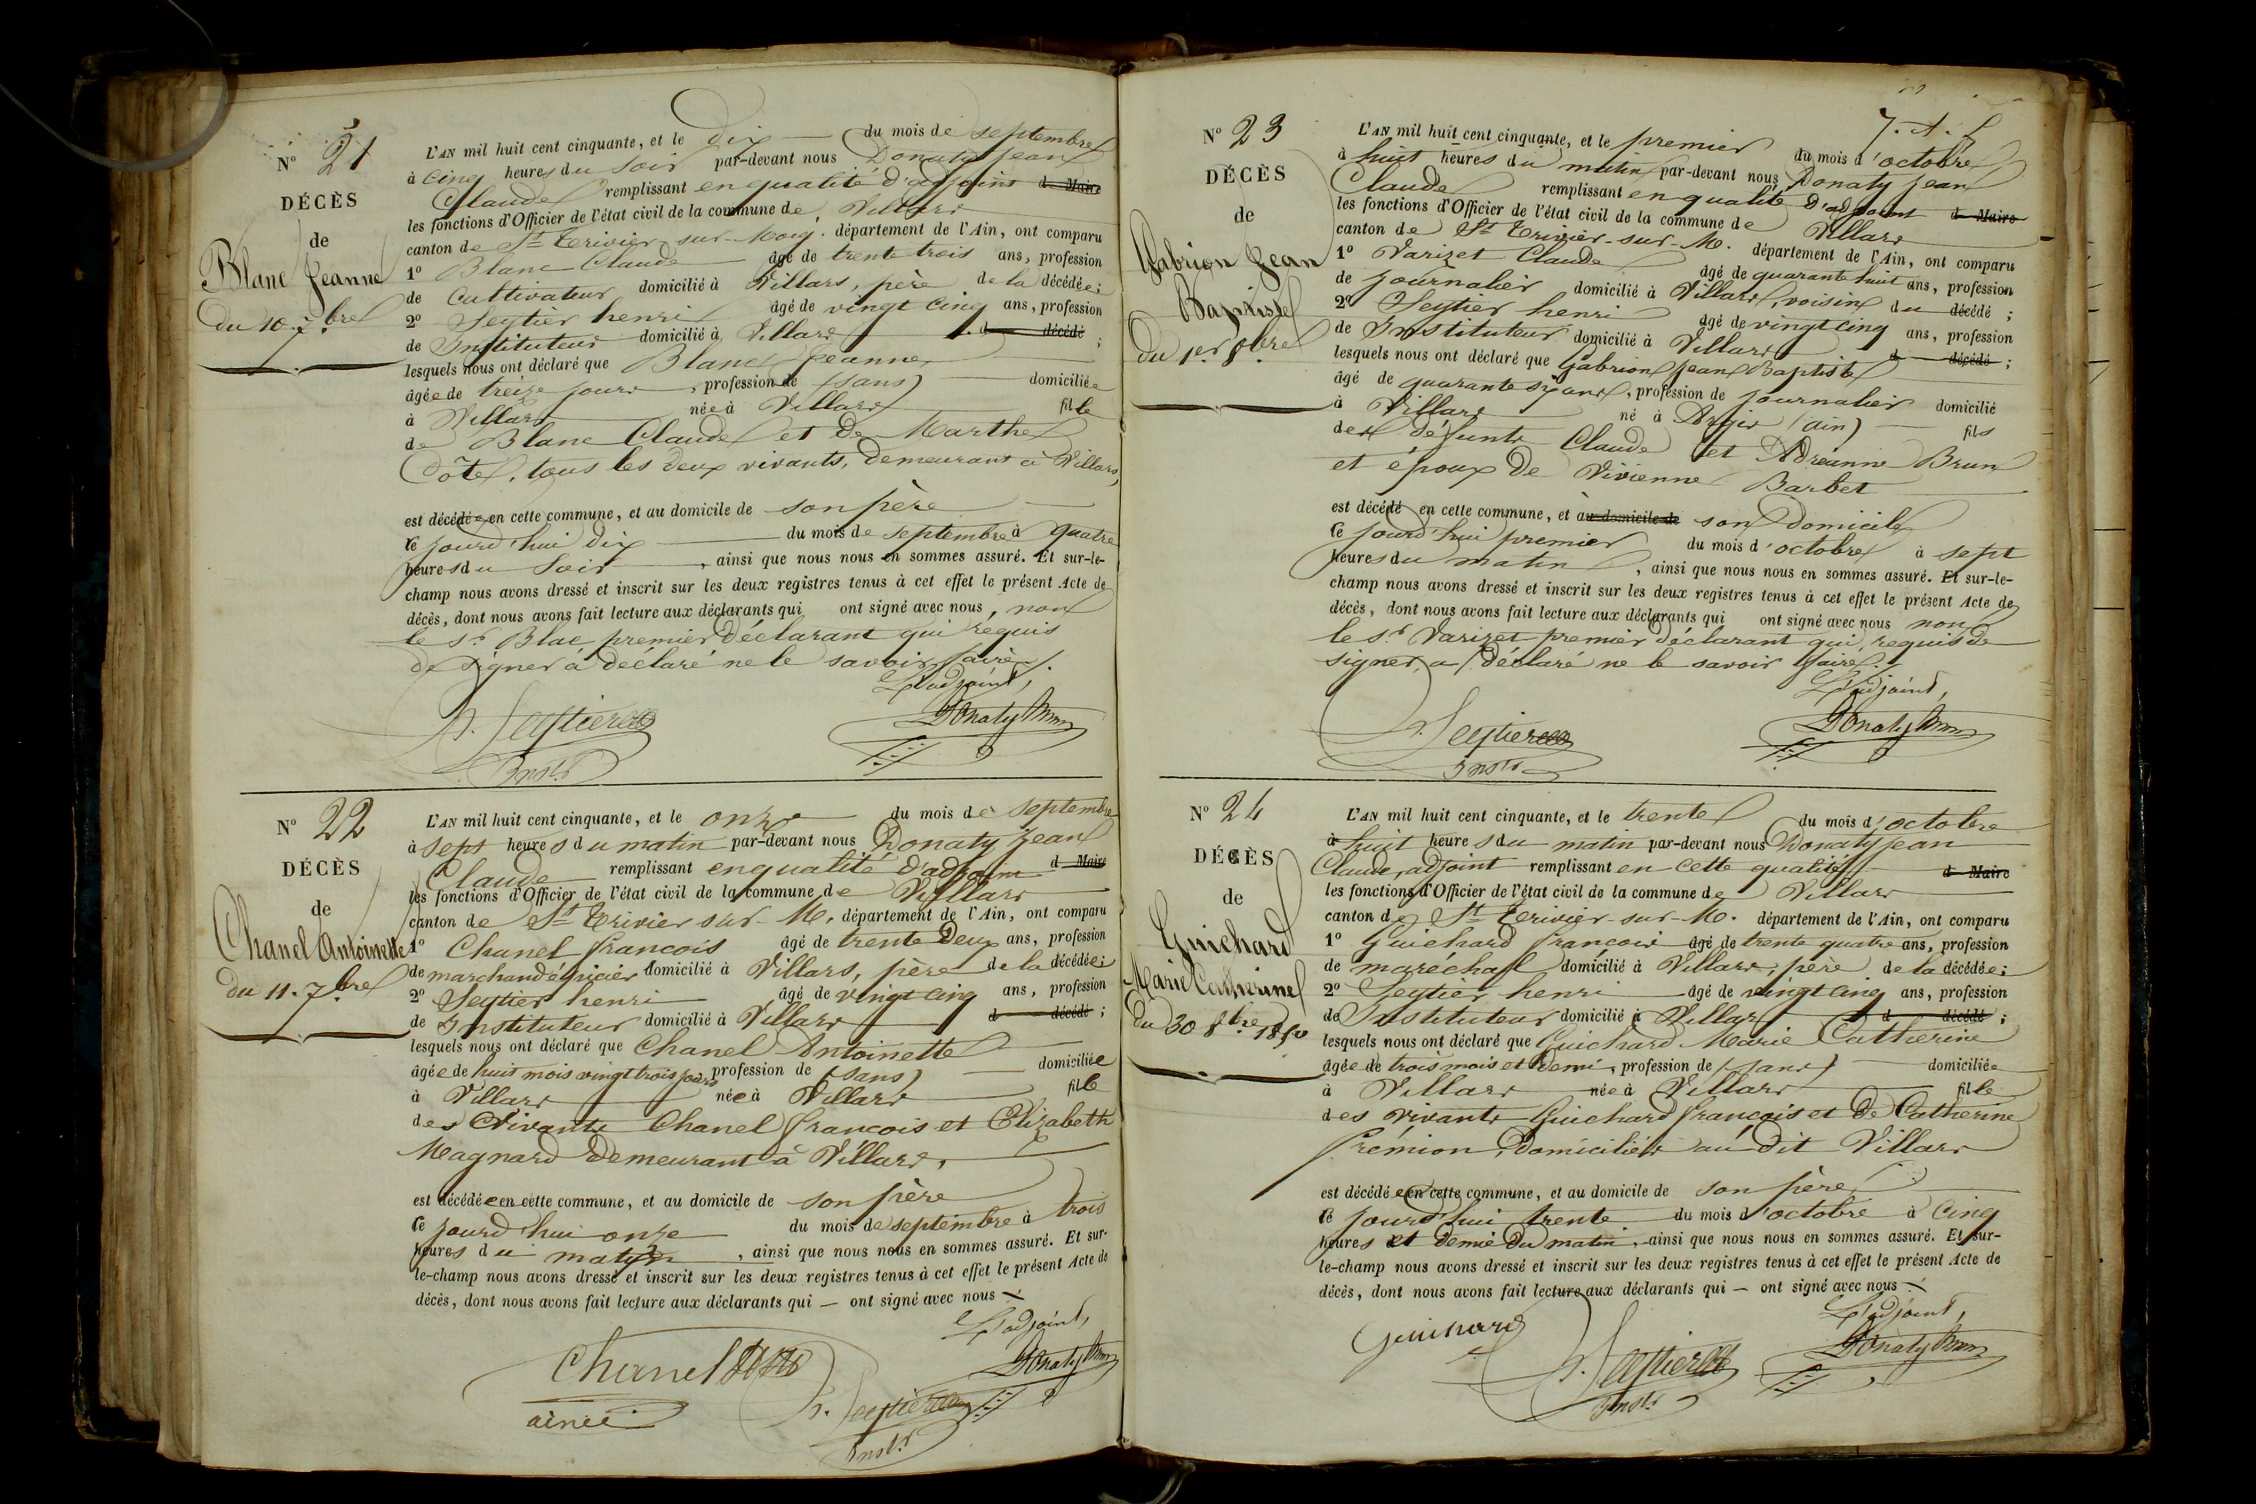 N° 21
DÉCÈS
de
Blanc Jeanne
du 10 7bre
L'AN mil huit cent cinquante, et le dix du mois de septembre
à cinq heures du soir par-devant nous Donaty Jean
Claude remplissant en qualité d'adjoint d Maire
les fonctions d'Officier de l'état civil de la commune de Villars
canton de St Trivier-sur-Moig. département de l'Ain, ont comparu
1° Blanc Claude âgé de trente trois ans, profession
de Cultivateur domicilié à Villars, père de la décédée;
2° Seytier henri âgé de vingt cinq ans, profession
de Instituteur domicilié à Villars d décédé ;
lesquels nous ont déclaré que Blanc Jeanne
âgée de treize jours, profession de (sans) domiciliée
à Villars née à Villars fille
de Blanc Claude et de Marthe
Côte, tous les deux vivants, demeurant à Villars,
est décédée en cette commune, et au domicile de son père
ce jourd'hui dix du mois de septembre à quatre
heures du soir, ainsi que nous nous en sommes assuré. Et sur-le-
champ nous avons dressé et inscrit sur les deux registres tenus à cet effet le présent Acte de
décès, dont nous avons fait lecture aux déclarants qui ont signé avec nous, non
le sr Blac premier déclarant qui réquis
de signer à déclaré ne le savoir faire.
L'adjoint,
h. Seytier
Instr
Donaty
N° 22
DÉCÈS
de
Chanel Antoinette
du 11. 7bre
L'AN mil huit cent cinquante, et le onze du mois de septembre
à sept heures du matin par-devant nous Donaty Jean
Claude remplissant en qualité d'adjoint d Maire
les fonctions d'Officier de l'état civil de la commune de Villars
canton de St Trivier sur-M. département de l'Ain, ont comparu
1° Chanel francois âgé de trente deux ans, profession
de marchand épicier domicilié à Villars, père de la décédée;
2° Seytier henri âgé de vingt cinq ans, profession
de Instituteur domicilié à Villars d décédé ;
lesquels nous ont déclaré que Chanel Antoinette
âgée de huit mois vingt trois jours profession de (sans) domiciliée
à Villars née à Villars fille
des Vivants Chanel francois et Elizabeth
Magnard demeurant à Villars,
est décédée en cette commune, et au domicile de son père
ce jourd'hui onze du mois de septembre à trois
heures du matin, ainsi que nous nous en sommes assuré. Et sur-
le-champ nous avons dressé et inscrit sur les deux registres tenus à cet effet le présent Acte de
décès, dont nous avons fait lecture aux déclarants qui — ont signé avec nous
L'adjoint,
Chanel
ainée
h. Seytier
Instr
Donaty
N° 23
DÉCÈS
de
Gabrion Jean
Baptiste
du 1er 8bre
L'AN mil huit cent cinquante, et le premier du mois d'octobre
à huit heures du matin par-devant nous Donaty Jean
Claude remplissant en qualité d'adjoint d Maire
les fonctions d'Officier de l'état civil de la commune de Villars
canton de St Trivier-sur-M. département de l'Ain, ont comparu
1° Varizet Claude âgé de quarante huit ans, profession
de journalier domicilié à Villars, voisin du décédé ;
2° Seytier henri âgé de vingt cinq ans, profession
de Instituteur domicilié à Villars d décédé ;
lesquels nous ont déclaré que Gabrion Jean Baptiste
âgé de quarante six ans, profession de journalier domicilié
à Villars né à (ain) fils
des défunts Claude et Adréanne Brun
et époux de Vivienne Barbet
est décédé en cette commune, et au domicile de son domicile
ce jourd'hui premier du mois d'octobre à sept
heures du matin, ainsi que nous nous en sommes assuré. Et sur-le-
champ nous avons dressé et inscrit sur les deux registres tenus à cet effet le présent Acte de
décès, dont nous avons fait lecture aux déclarants qui ont signé avec nous non
le sr Varizet premier déclarant qui, requis de
signer, a déclaré ne le savoir faire.
L'adjoint,
h. Seytier
Instr
Donaty
N° 24
DÉCÈS
de
Guichard
Marie Catherine
du 30 8bre 1850
L'AN mil huit cent cinquante, et le trente du mois d'octobre
à huit heures du matin par-devant nous Donaty Jean
Claude, adjoint remplissant en cette qualité d Maire
les fonctions d'Officier de l'état civil de la commune de Villars
canton de St Trivier-sur-M. département de l'Ain, ont comparu
1° Guichard françois âgé de trente quatre ans, profession
de maréchal domicilié à Villars, père de la décédée;
2° Seytier henri âgé de vingt cinq ans, profession
de Instituteur domicilié à Villars d décédé ;
lesquels nous ont déclaré que Guichard Marie Catherine
âgée de trois mois et demi, profession de (sans) domiciliée
à Villars née à Villars fille
des vivants Guichard françois et de Catherine
Prémion, domiciliés au dit Villars
est décédée en cette commune, et au domicile de son père
ce jourd'hui trente du mois d'octobre à cinq
heures et demie du matin, ainsi que nous nous en sommes assuré. Et sur-
le-champ nous avons dressé et inscrit sur les deux registres tenus à cet effet le présent Acte de
décès, dont nous avons fait lecture aux déclarants qui — ont signé avec nous
L'adjoint,
Guichard
h. Seytier
Instr
Donaty